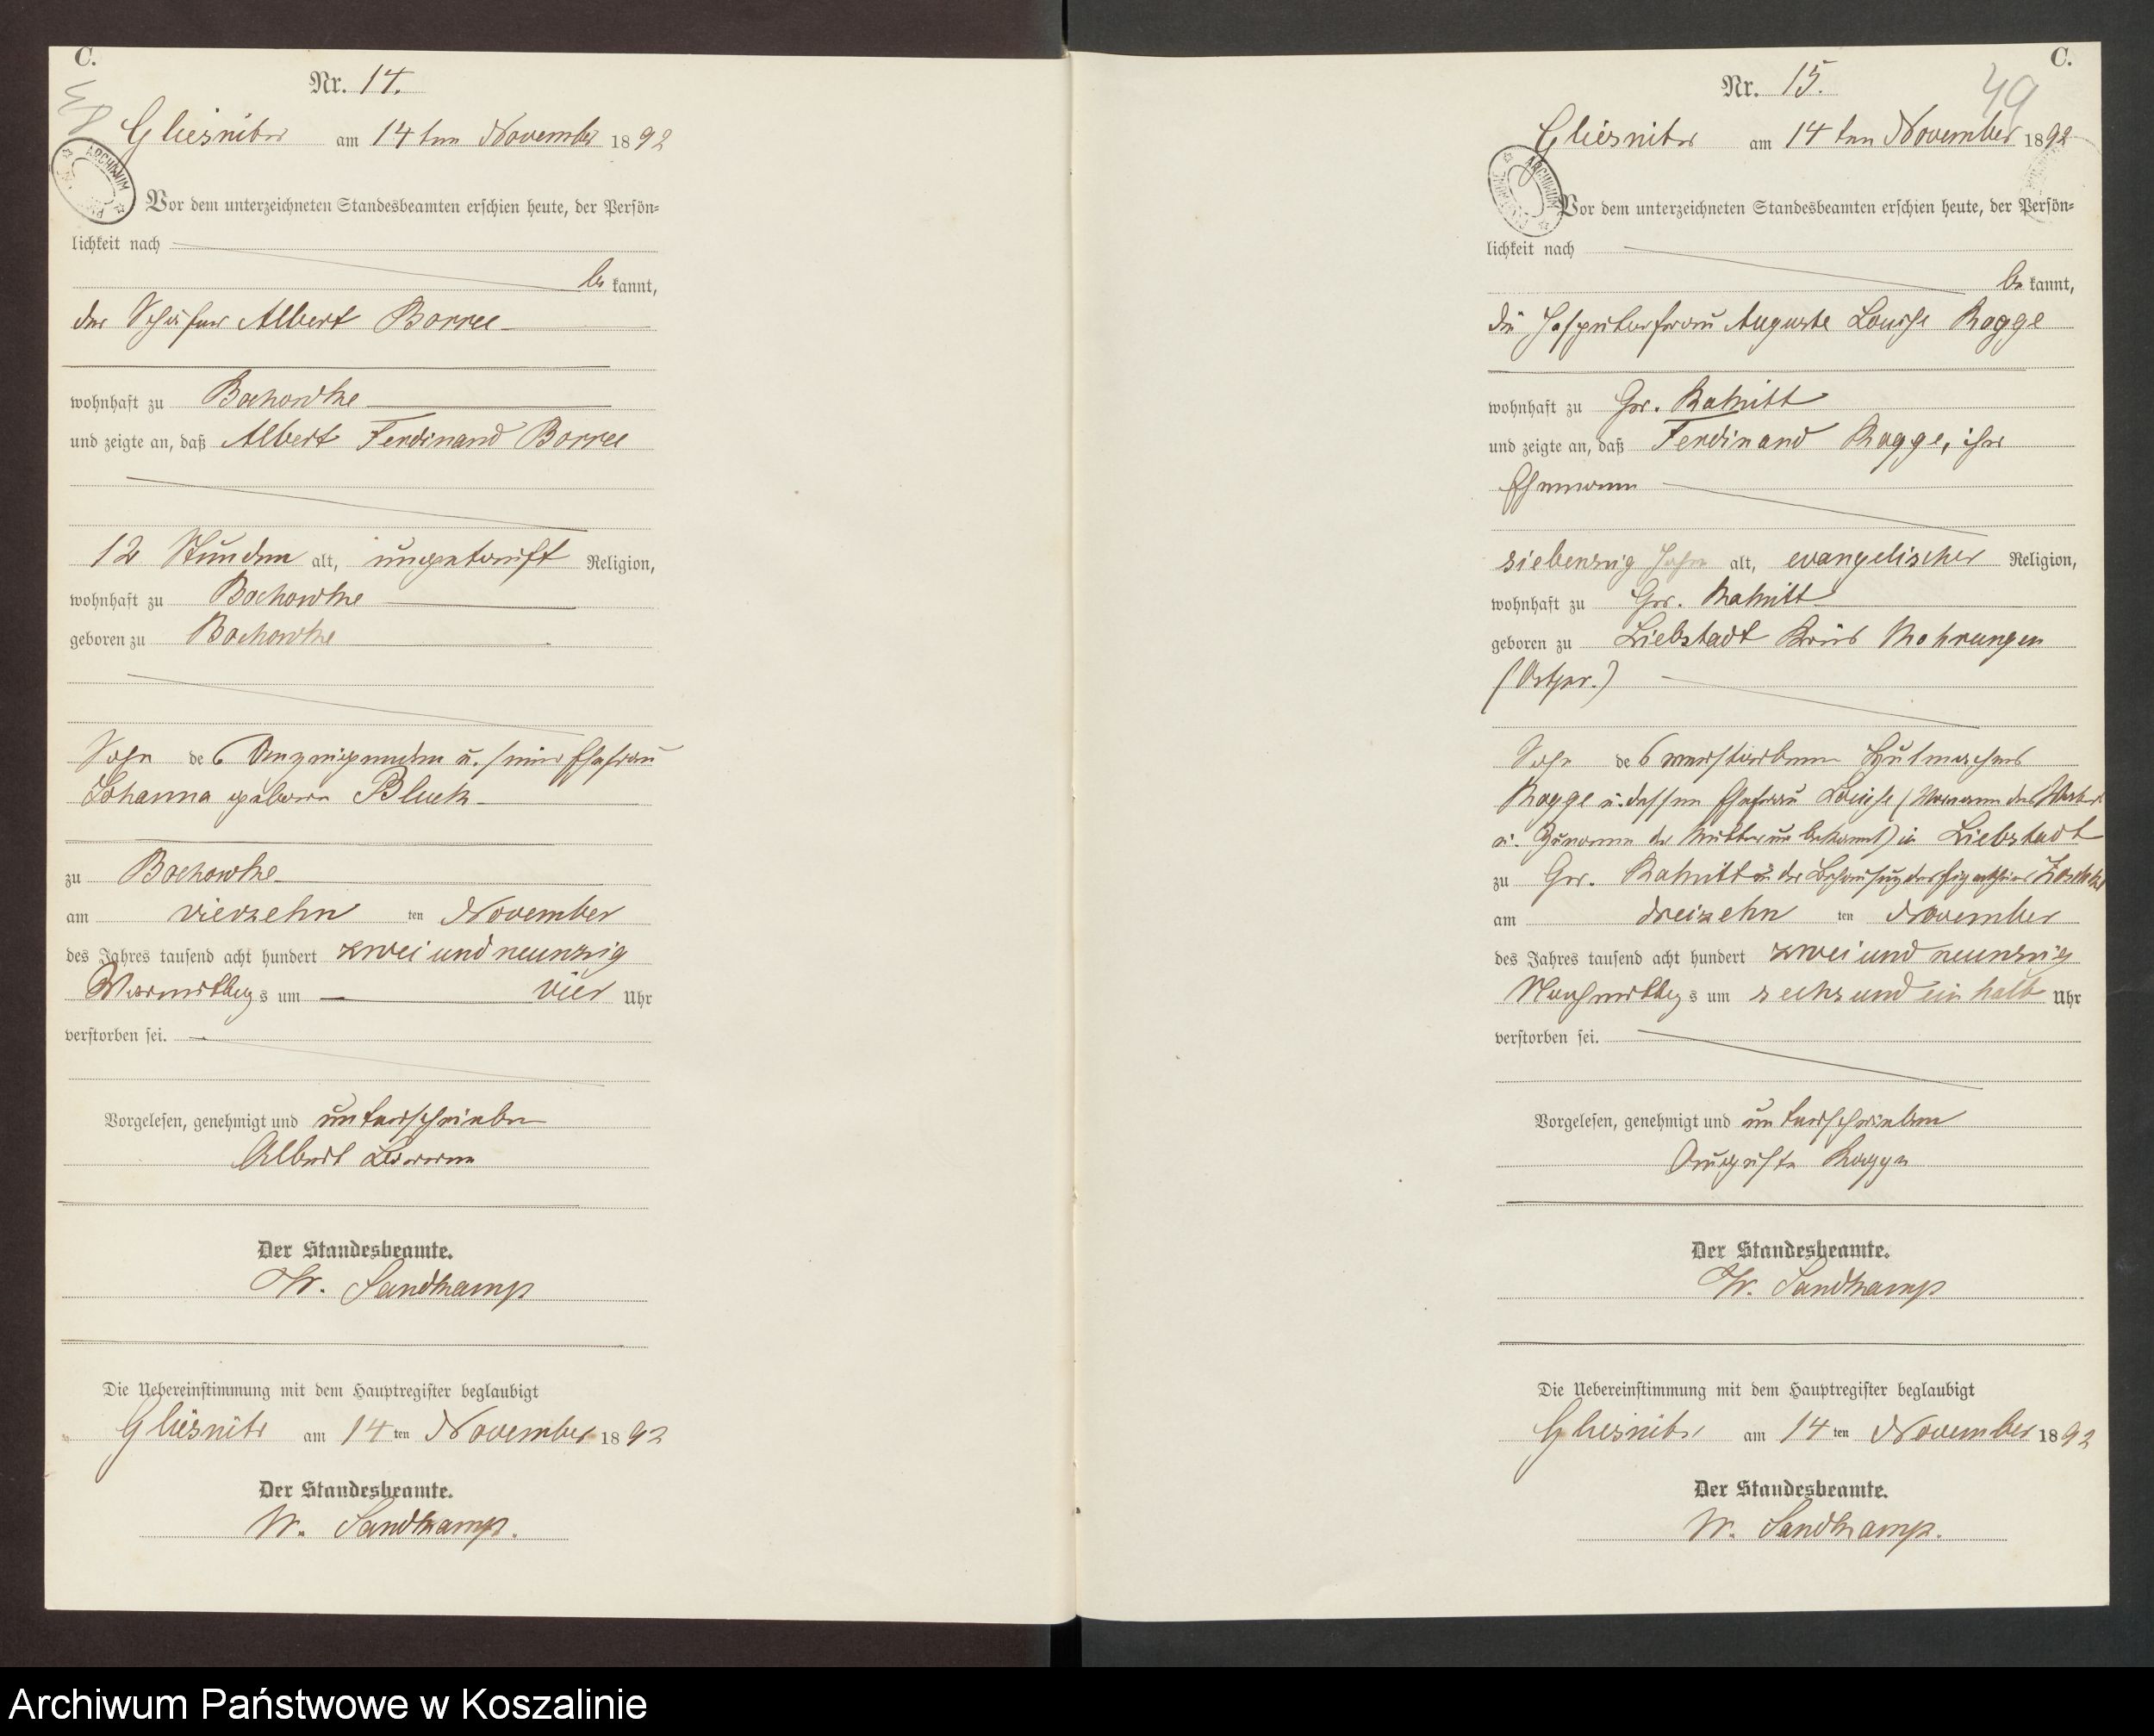 C.
Nr. 14.
Gliesnitz am 14ten November 1892
ARCHIWUM
Vor dem unterzeichneten Standesbeamten erschien heute, der Persön=
lichkeit nach
be kannt,
der Schäfer Albert Borree
wohnhaft zu Bochowke
und zeigte an, daß Albert Ferdinand Borree
12 Stunden alt, ungetauft Religion,
wohnhaft zu Bochowke
geboren zu Bochowke
Sohn des Anzeigenden u. seiner Ehefrau
Johanna geborne Bluck
zu Bochowke
am vierzehn ten November
des Jahres tausend acht hundert zwei und neunzig
Vormittags um vier Uhr
verstorben sei.
Vorgelesen, genehmigt und unterschrieben
Albert
Der Standesbeamte.
W. Sandkamp
Die Uebereinstimmung mit dem Hauptregister beglaubigt
Gliesnitz am 14 ten November 1892
Der Standesbeamte.
W. Sandkamp.
C.
49
Nr. 15.
Gliesnitz am 14ten November 1892
ARCHIWUM
Vor dem unterzeichneten Standesbeamten erschien heute, der Persön=
lichkeit nach
be kannt,
die Hospitalfrau Auguste Louise Rogge
wohnhaft zu Gr. Rakitt
und zeigte an, daß Ferdinand Rogge, ihr
Ehemann
siebenzig Jahre alt, evangelischer Religion,
wohnhaft zu Gr. Rakitt
geboren zu Liebstadt Kreis Mohrungen
(Ostpr.)
Sohn des verstorbenen Hutmachers
Rogge u. dessen Ehefrau Louise (Vorname des Vaters
u. Zuname der Mutter unbekannt) in Liebstadt
zu Gr. Rakitt in der Behausung des Eigenthümers
am dreizehn ten November
des Jahres tausend acht hundert zwei und neunzig
Nachmittags um sechs und ein halb Uhr
verstorben sei.
Vorgelesen, genehmigt und unterschrieben
Auguste Rogge
Der Standesbeamte.
W. Sandkamp
Die Uebereinstimmung mit dem Hauptregister beglaubigt
Gliesnitz am 14 ten November 1892
Der Standesbeamte.
W. Sandkamp.
Archiwum Państwowe w Koszalinie